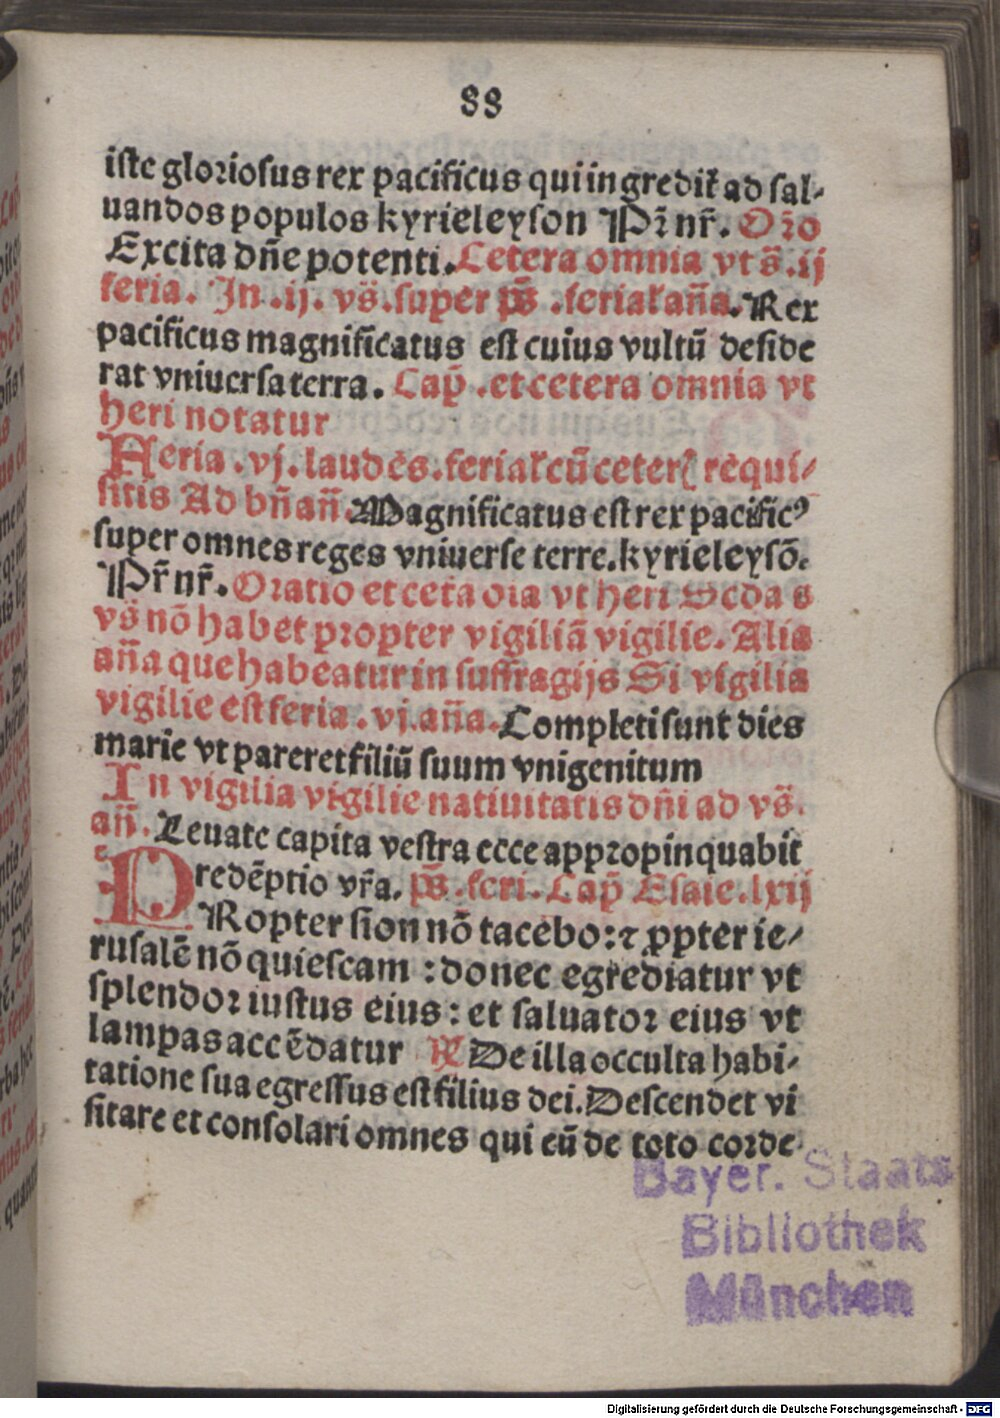 88
iste gloriosus rex pacificus qui ingredit᷑ ad sal⸗
uandos populos kyrieleyson Pr̄ nr̄. Oro
Excita dn̄e potenti. Cetera omnia vt s̄. ij
feria. In .ij. vs̄. super ps̄ .ferial᷑ an̄a. Rex
pacificus magnificatus est cuius vultū deside
rat vniuersa terra. Cap̄ .et cetera omnia vt
heri notatur
Feria .vj. laudes. ferial᷑ cū ceterꝭ requi⸗
sitis Ad bn̄ an̄. Magnificatus est rex pacificꝰ
super omnes reges vniuerse terre. kyrieleysō.
Pr̄ nr̄. Oratio et cet̄a oīa vt heri Scda s
vs̄ nō habet propter vigiliā vigilie. Alia
an̄a que habeatur in suffragijs Si vigilia
vigilie est feria .vj. an̄a. Completi sunt dies
marie vt pareret filiū suum vnigenitum
In vigilia vigilie natiuitatis dn̄i ad vs̄.
an̄. Leuate capita vestra ecce appropinquabit
redēptio vr̄a. ps̄. feri. Cap̄ Esaie. lxij
PRopter sion nō tacebo: ⁊ ꝓpter ie⸗
rusalē nō quiescam : donec egrediatur vt
splendor iustus eius : et saluator eius vt
lampas accēdatur ℟ De illa occulta habi⸗
tatione sua egressus est filius dei. Descendet vi
sitare et consolari omnes qui eū de toto corde
Bayer. Staats
Bibliothek
München
Digitalisierung gefördert durch die Deutsche Forschungsgemeinschaft - DFG